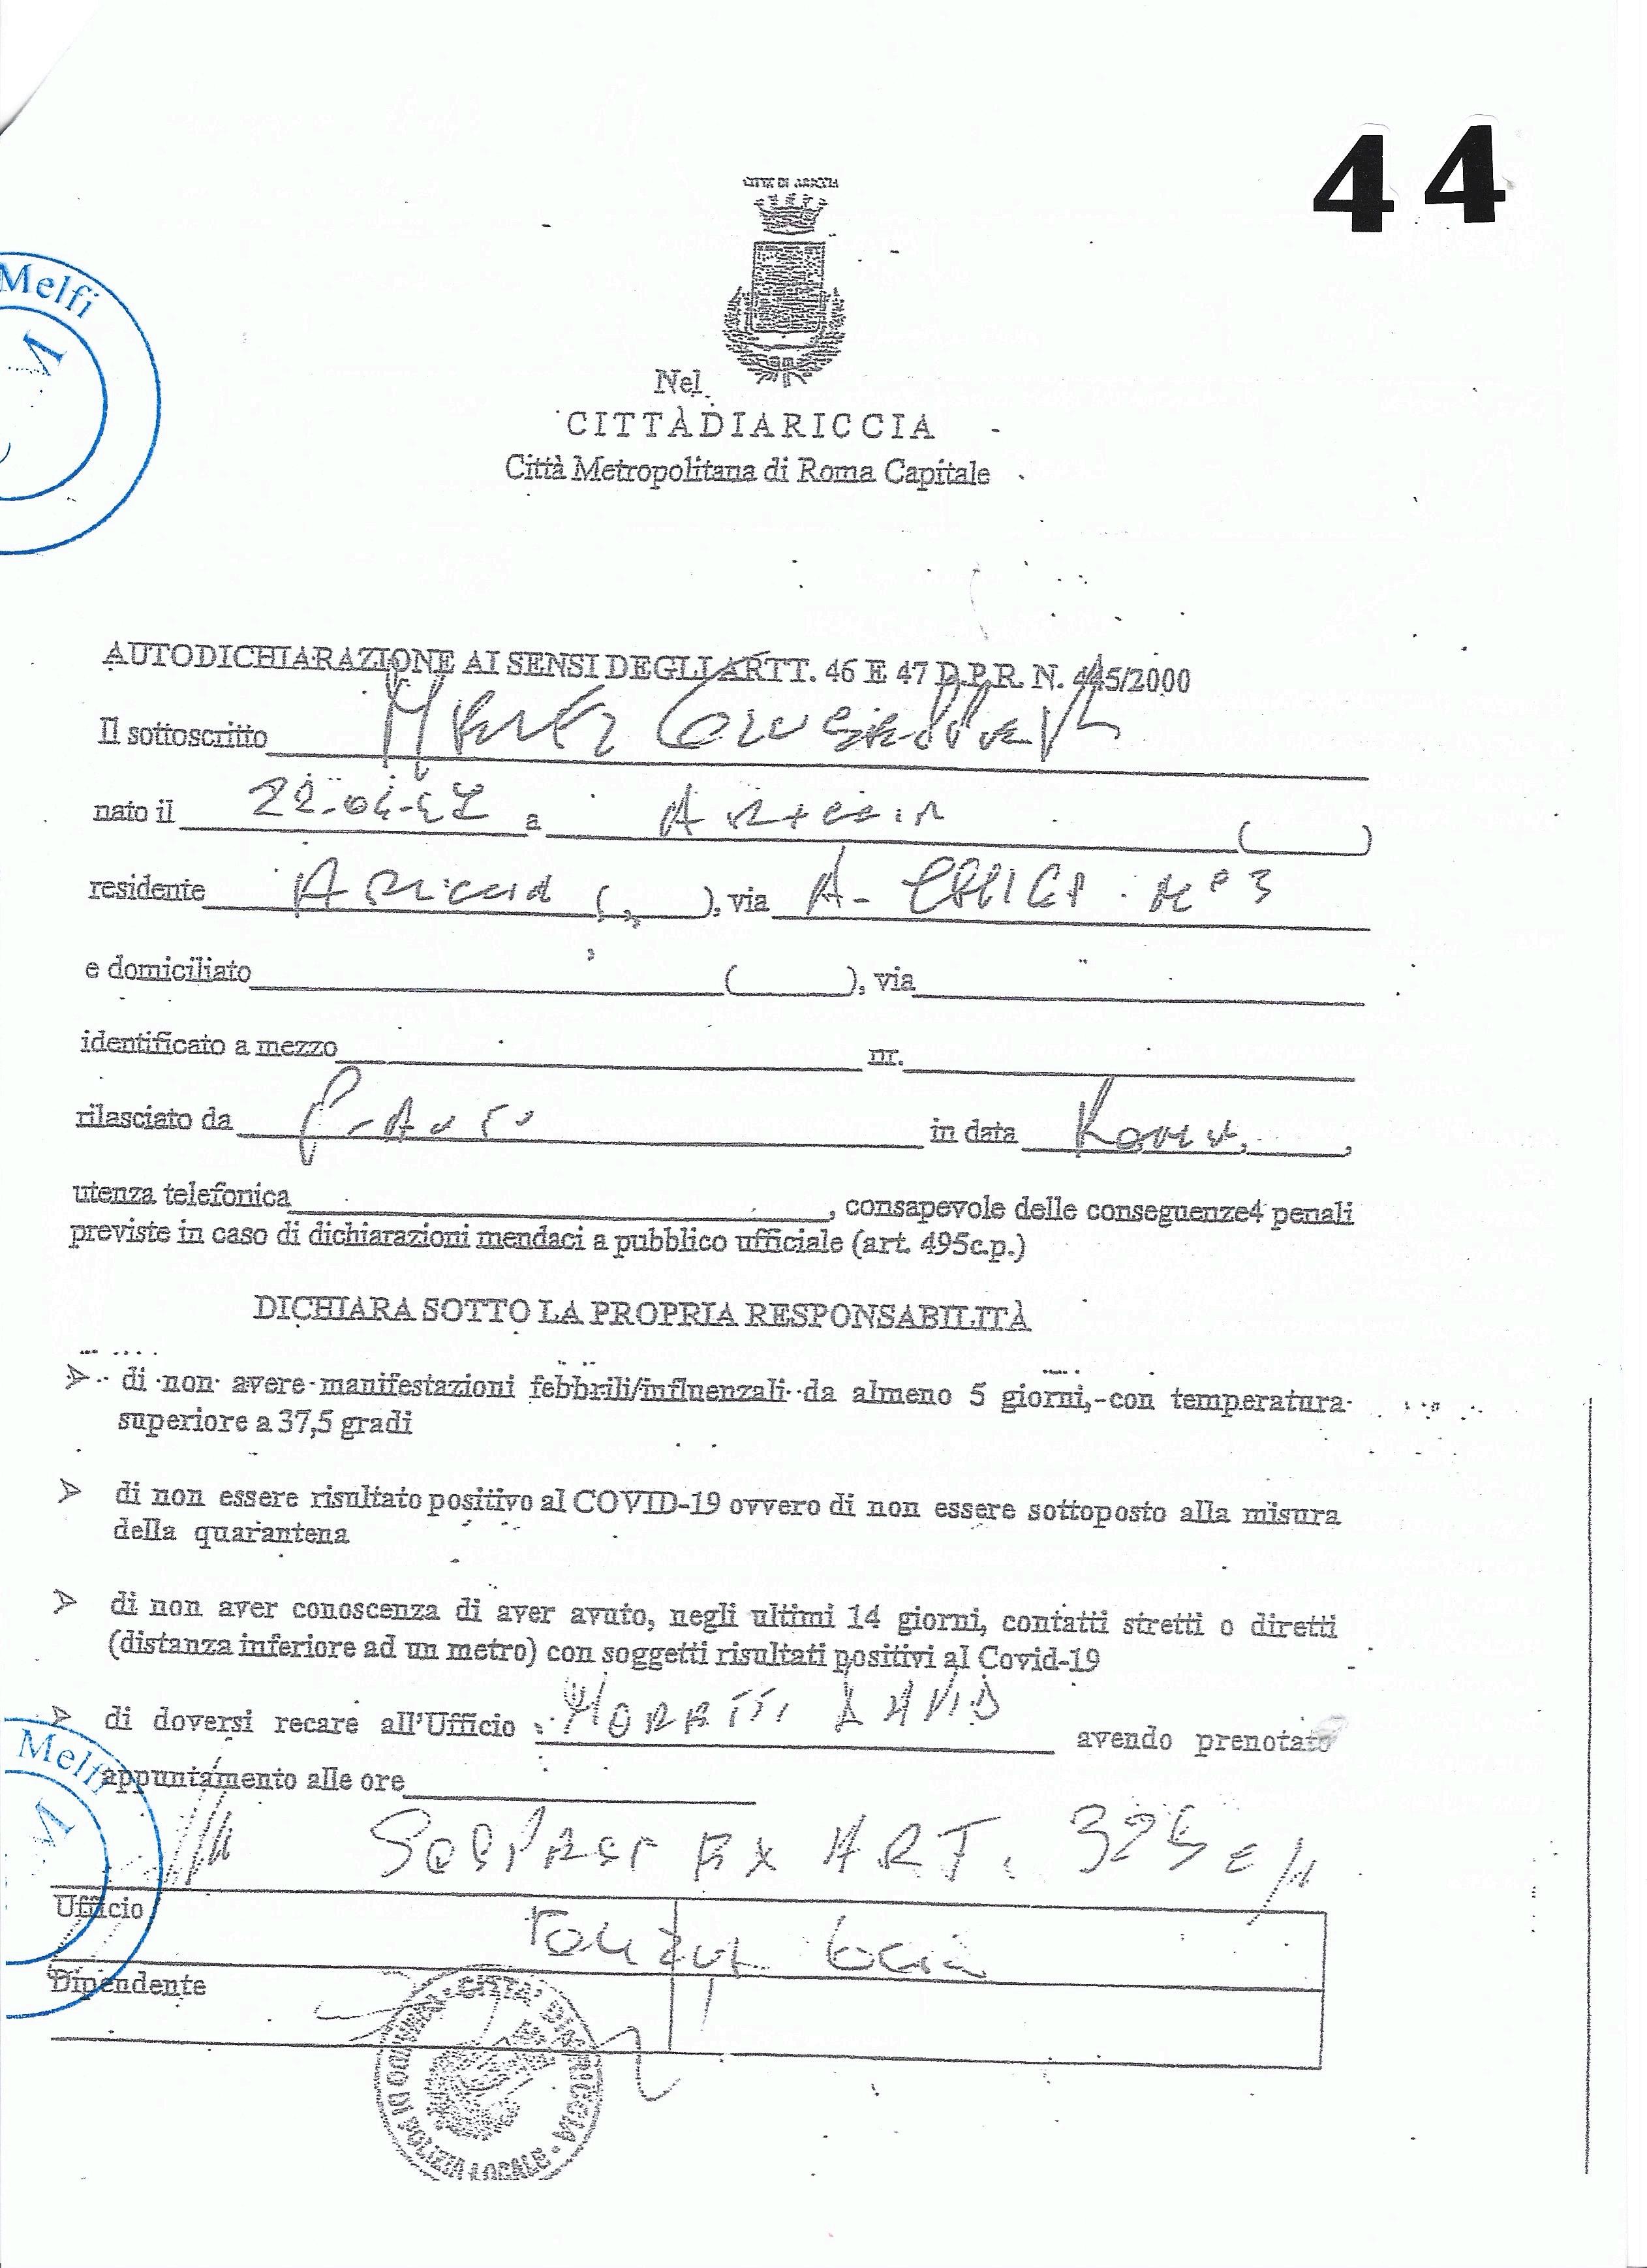 44
CITTÀ DI ARICCIA
Melfi
M
Nel
CITTÀDIARICCIA
Città Metropolitana di Roma Capitale
AUTODICHIARAZIONE AI SENSI DEGLI ARTT. 46 E 47 D.P.R. N. 445/2000
Il sottoscritto
nato il 22-04- a Ariccia ( )
residente Ariccia ( ), via A- N° 3
e domiciliato ( ), via
identificato a mezzo nr.
rilasciato da in data Roma,
utenza telefonica , consapevole delle conseguenze4 penali
previste in caso di dichiarazioni mendaci a pubblico ufficiale (art. 495c.p.)
DICHIARA SOTTO LA PROPRIA RESPONSABILITÀ
di non avere manifestazioni febbrili/influenzali da almeno 5 giorni, con temperatura
superiore a 37,5 gradi
di non essere risultato positivo al COVID-19 ovvero di non essere sottoposto alla misura
della quarantena
di non aver conoscenza di aver avuto, negli ultimi 14 giorni, contatti stretti o diretti
(distanza inferiore ad un metro) con soggetti risultati positivi al Covid-19
di doversi recare all'Ufficio avendo prenotato
Melfi
M
appuntamento alle ore
ART. 325
Ufficio
Dipendente
CITTA' DI ARICCIA
POLIZIA LOCALE